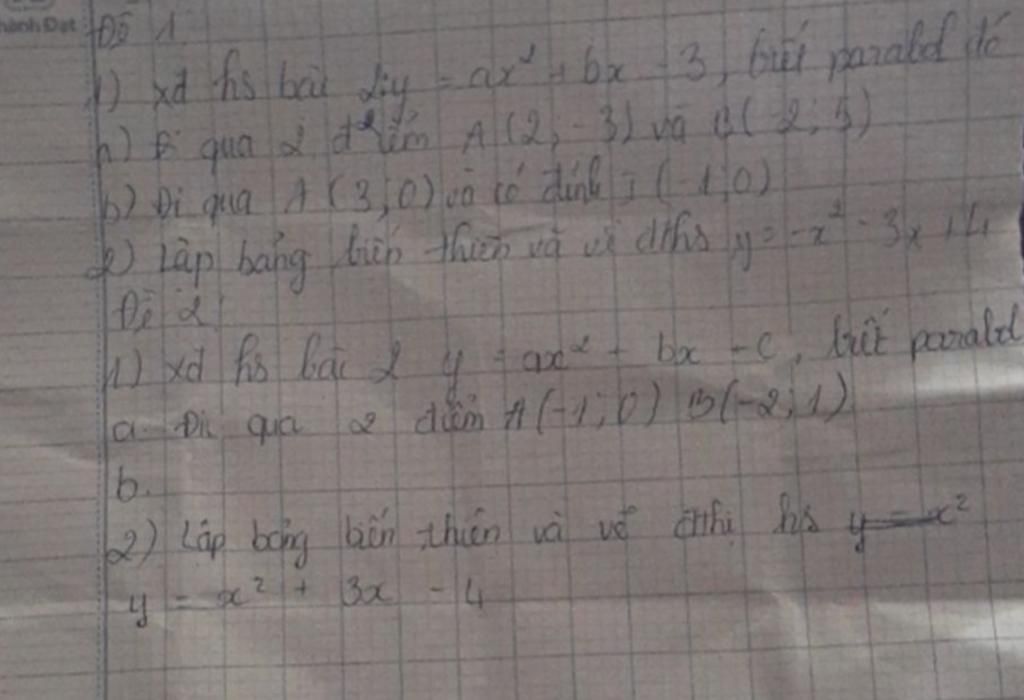 hành Đạt
Đề 1
1) xđ hs bài 2: y = ax² + bx - 3, biết parabol đó
a) Đi qua 2 điểm A (2; -3) và B(-2; 5)
b) Đi qua A (3; 0) và có đỉnh I (-1; 0)
2) Lập bảng biến thiên và vẽ đths y = -x² - 3x + 4
Đề 2
1) xđ hs bậc 2 y = ax² + bx - c, biết parabol
a. Đi qua 2 điểm A(-1; 0) B(-2; 1)
b.
2) Lập bảng biến thiên và vẽ đthị hs y = x²
y = x² + 3x - 4